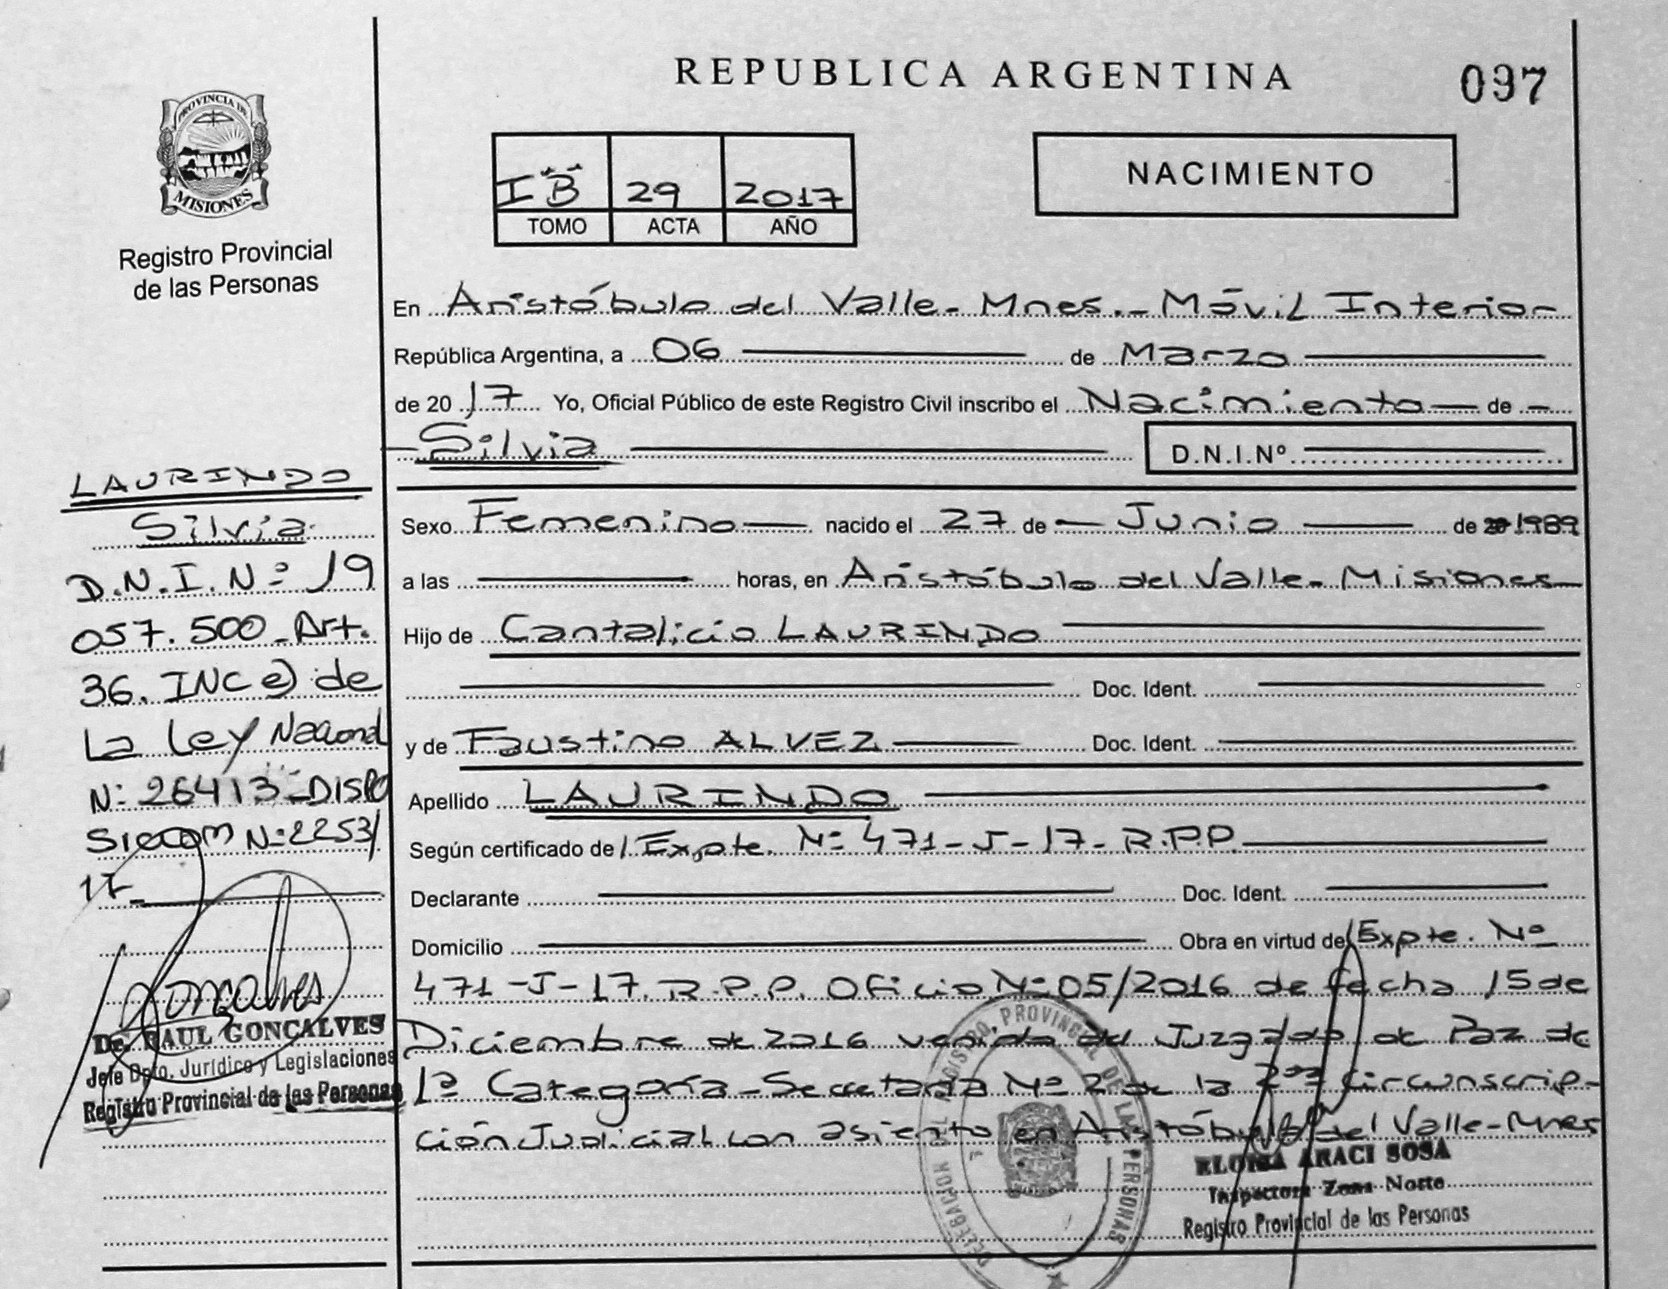 PROVINCIA DE
MISIONES
Registro Provincial
de las Personas
LAURINDO
Silvia
D.N.I. Nº 19
057.500 - Art.
36. INC e) de
La Ley Nacional
Nº 26413 - DISPO
SICION Nº 2253/
17-
Goncalves
Dr. RAUL GONCALVES
Jefe Dpto. Jurídico y Legislaciones
Registro Provincial de las Personas
REPUBLICA ARGENTINA
097
I "B" 29 2017
TOMO ACTA AÑO
NACIMIENTO
En Aristóbulo del Valle - Mnes. - Móvil Interior
República Argentina, a 06 de Marzo
de 2017 Yo, Oficial Público de este Registro Civil inscribo el Nacimiento de
Silvia D.N.I.Nº
Sexo Femenino nacido el 27 de Junio de 20 1989
a las horas, en Aristóbulo del Valle - Misiones
Hijo de Cantalicio LAURINDO
Doc. Ident.
y de Faustino ALVEZ Doc. Ident.
Apellido LAURINDO
Según certificado de Expte. Nº 471-J-17- R.P.P.
Declarante Doc. Ident.
Domicilio Obra en virtud de Expte. Nº
471-J-17. R.P.P. Oficio Nº 05/2016 de fecha 15 de
Diciembre de 2016 venido del Juzgado de Paz de
1ª Categoría - Secretaría Nº 2 de la 2da Circunscrip-
ción Judicial con asiento en Aristóbulo del Valle - Mnes
DELEGACION DEL REGISTRO PROVINCIAL DE LAS PERSONAS
ELOISA ARACI SOSA
Inspectora Zona Norte
Registro Provincial de las Personas